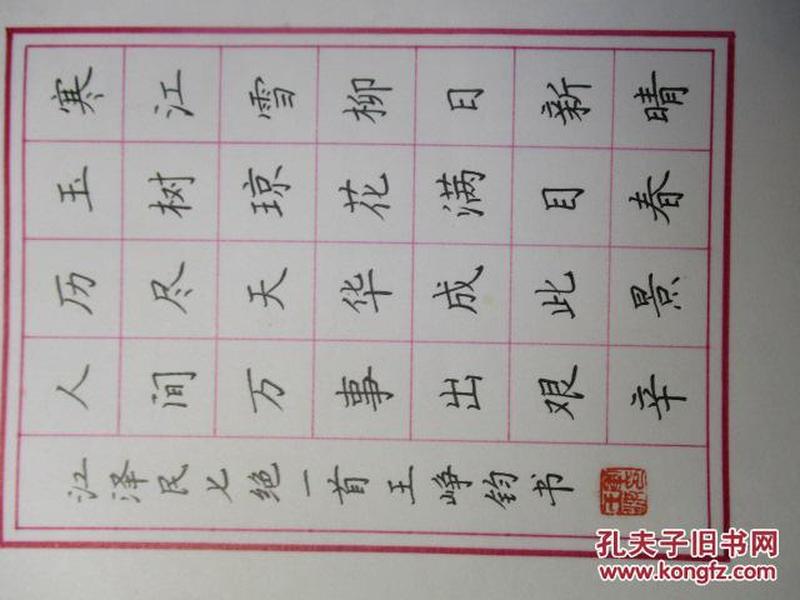 寒江雪柳日新晴
玉树琼花满目春
历尽天华成此景
人间万事出艰辛
江泽民七绝一首王峥钧书
孔夫子旧书网
www.kongfz.com